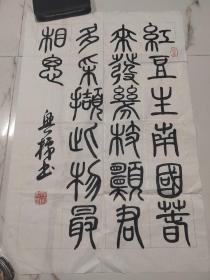 紅豆生南國萅
來發幾枝願君
多采擷此物最
相思
书